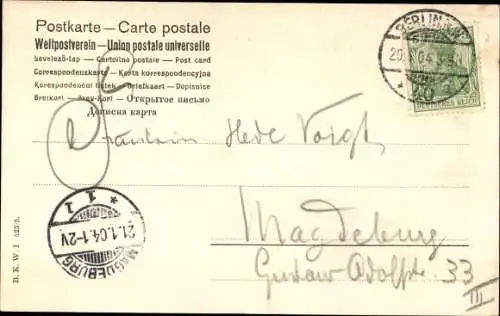 Postkarte — Carte postale
Weltpostverein — Union postale universelle
Levelező-lap — Cartolina postale — Post card
Correspondenzkarte — Karta korrespondencyjna
Korespondenční lístek — Briefkaart — Dopisnice
Brevkort — Brev-Kort — Открытое письмо
Дописна карта
BERLIN
04
DEUTSCHES REICH
Fräulein Hede Voigt
Magdeburg
Gustav Adolfstr 33
III
* 1 1
21.1.04.1-2V
MAGDEBURG
B. K. W. I